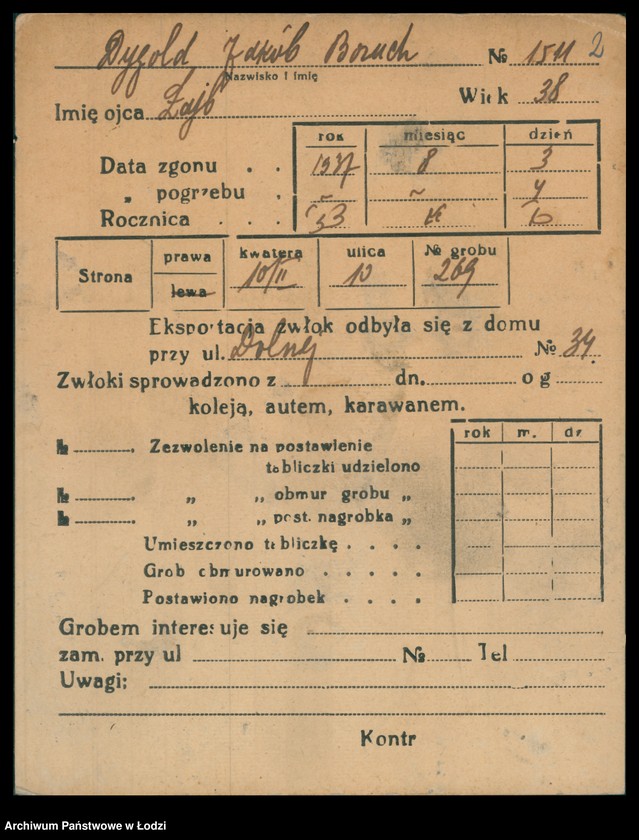 Dygold Jakób Boruch № 1511 2
Nazwisko i imię
Imię ojca Łajb Wiek 38
rok miesiąc dzień
Data zgonu . . 1937 8 3
„ pogrzebu . ~ ~ 4
Rocznica . . .
Strona prawa kwatera ulica № grobu
lewa 10/II 10 269
Eksportacja zwłok odbyła się z domu
przy ul. Dolnej № 34.
Zwłoki sprowadzono z dn. o g
koleją, autem, karawanem.
rok m. dz
№ Zezwolenie na postawienie
tabliczki udzielono
№ „ „ obmur grobu „
№ „ „ post. nagrobka „
Umieszczono tabliczkę . . . .
Grob obmurowano . . . . .
Postawiono nagrobek . . . .
Grobem interesuje się
zam. przy ul № Tel
Uwagi:
Kontr
Archiwum Państwowe w Łodzi